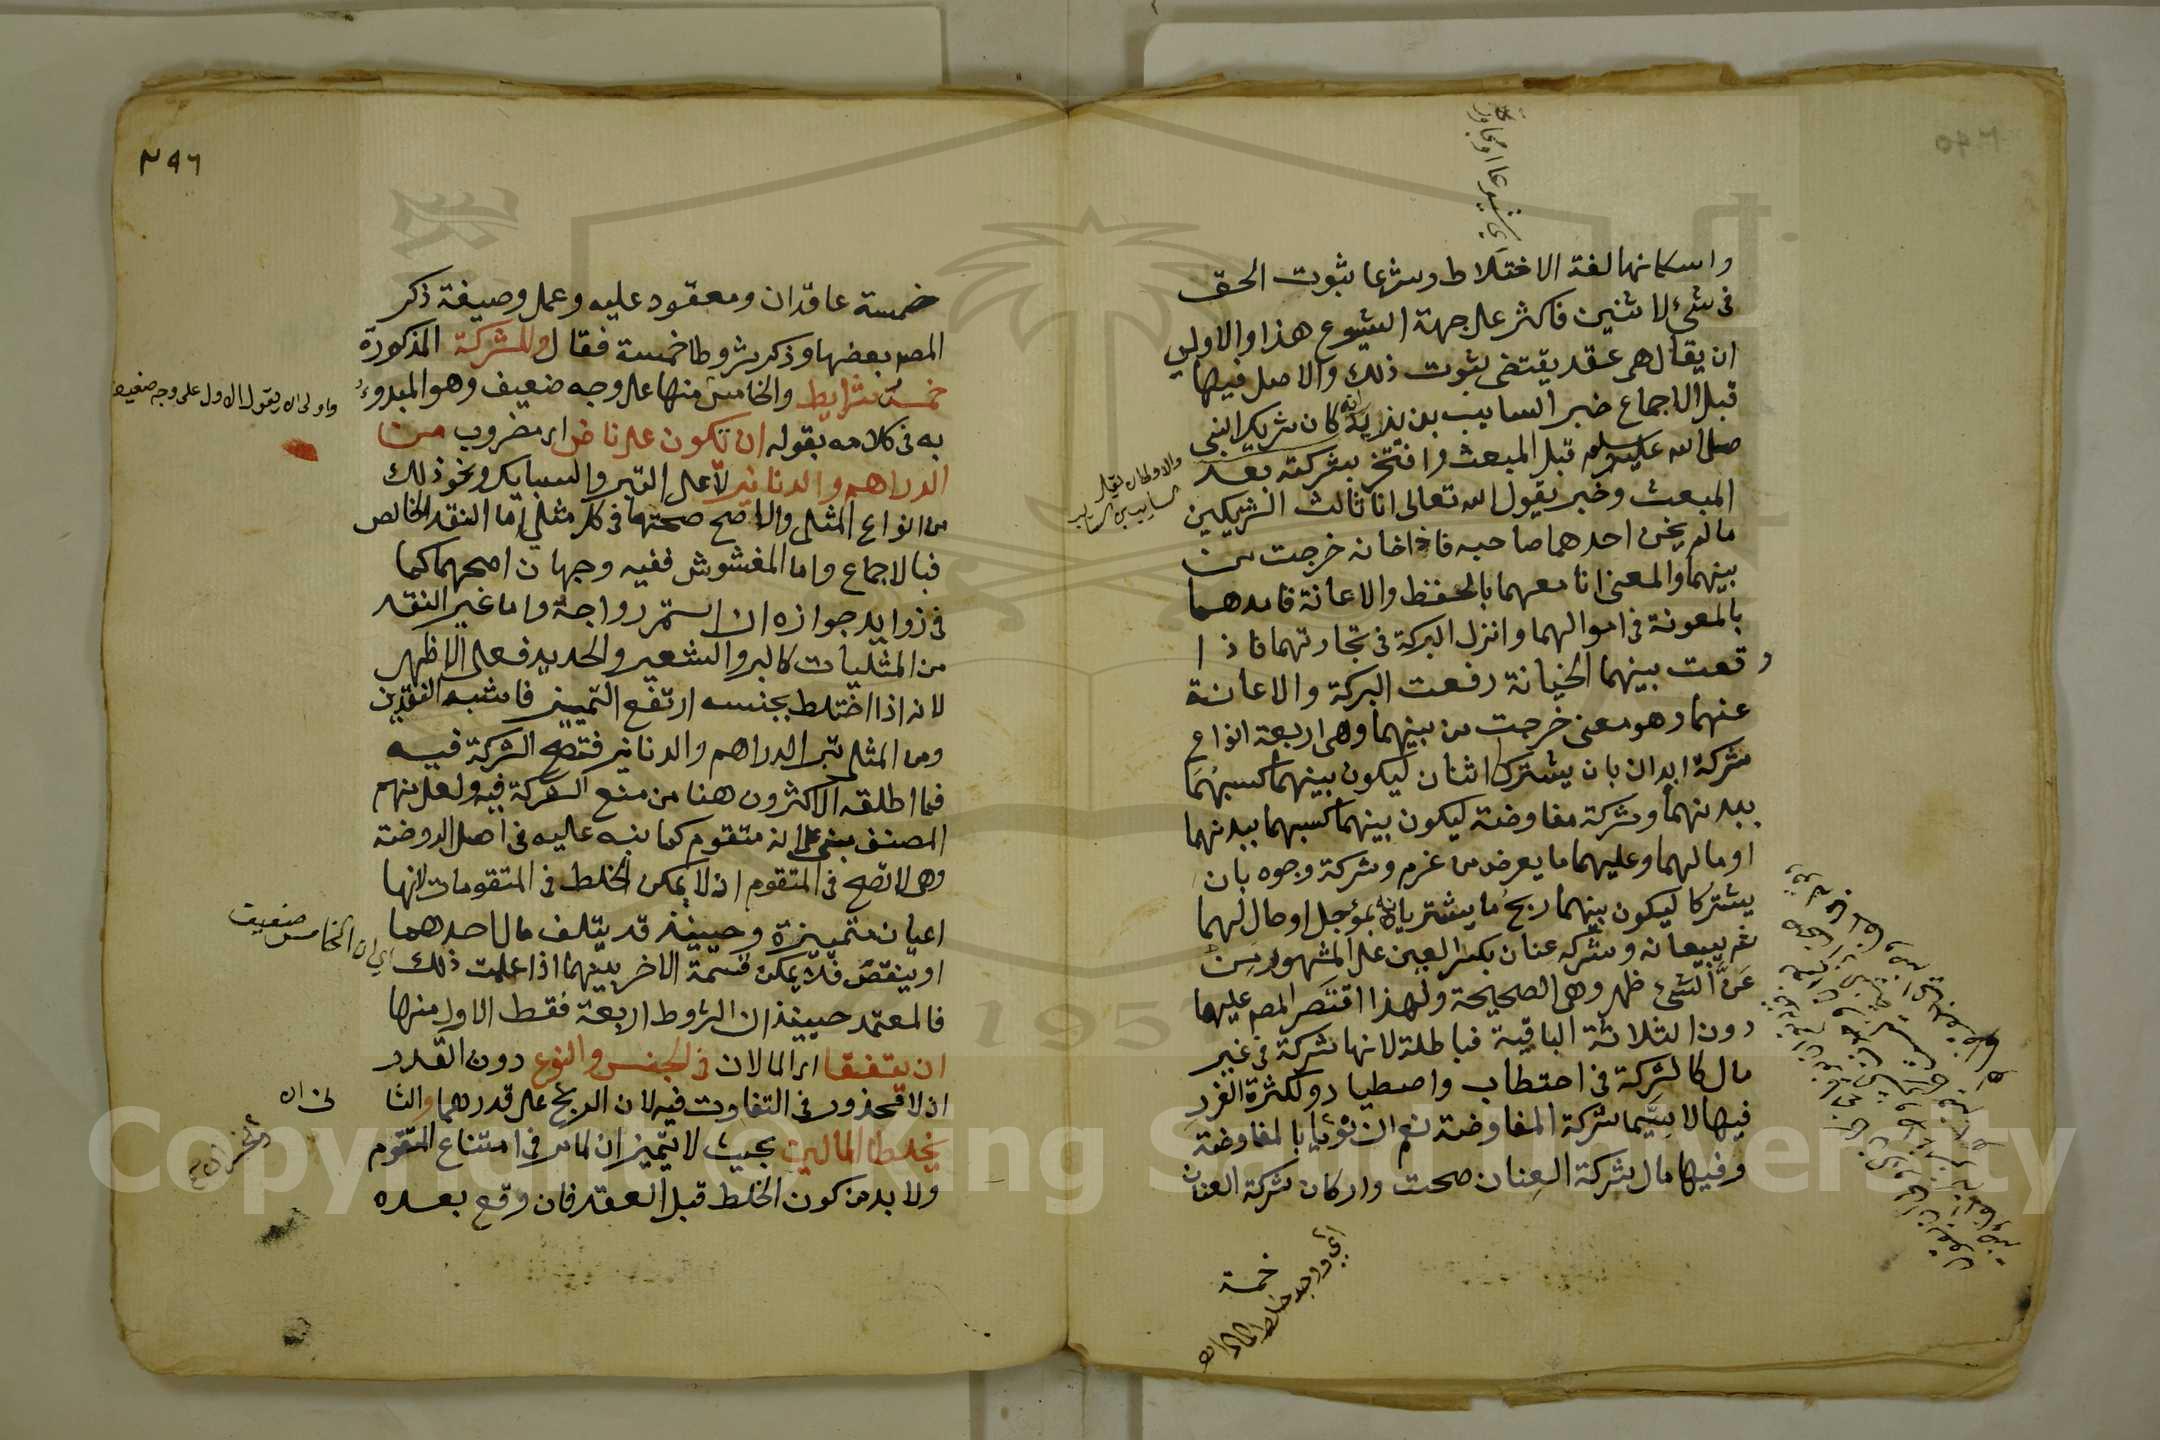 واسكانها لغة الاختلاط وشرعا ثبوت الحق
فى شئ لاثنين فاكثر على جهة الشيوع هذا والاولى
ان يقال هى عقد يقتضى ثبوت ذلك والاصل فيها
قبل الاجماع خبر السايب بن يزيد انه كان شريك النبى
صلى الله عليه وسلم قبل المبعث وافتخر بشركته بعد
المبعث وخبر يقول الله تعالى انا ثالث الشريكين
مالم يخن احدهما صاحبه فاذا خانه خرجت من
بينهما والمعنى انا معهما بالحفظ والاعانة فامدهما
بالمعونة فى اموالهما وانزل البركة فى تجارتهما فاذا
وقعت بينهما الخيانة رفعت البركة والاعانة
عنهما وهو معنى خرجت من بينهما وهى اربعة انواع
شركة ابدان بان يشتركا اثنان ليكون بينهما كسبهما
ببدنهما وشركة مفاوضة ليكون بينهما كسبهما ببدنهما
اومالهما وعليهما ما يعرض من غرم وشركة وجوه بان
يشتركا ليكون بينهما ربح ما يشتريانه بمؤجل اوحال لهما
ثم يبيعانه وشركة عنان بكسر العين على المشهور من
عَنَّ الشئ ظهر وهى الصحيحة ولهذا اقتصر المص عليها
دون الثلاثة الباقية فباطلة لانها شركة فى غير
مال كالشركة فى احتطاب واصطياد ولكثرة الغرر
فيها لاسيما شركة المفاوضة نعم ان نويا بالمفاوضة
وفيها مال شركة العنان صحت واركان شركة العنان
خمسة
اي شيوعا او مجاورة
٢٩٥
٢٩٦
خمسة عاقدان ومعقود عليه وعمل وصيغة ذكر
المص بعضها وذكر شروطا خمسة فقال وللشركة المذكورة
خمسة شرايط والخامس منها على وجه ضعيف وهو المبدوء
به فى كلامه بقوله ان تكون على ناض اى مضروب من
الدراهم والدنانير لا على التبر والسبايك ونحو ذلك
من انواع المثلى والاصح صحتها فى كل مثلي اما النقد الخالص
فبالاجماع واما المغشوش ففيه وجهان اصحهما كما
فى زوايد جوازه ان استمر رواجه واما غير النقد
من المثليات كالبر والشعير والحديد فعلى الاظهر
لانه اذا اختلط بجنسه ارتفع التمييز فاشبه النقدين
ومن المثلى تبر الدراهم والدنانير فتصح الشركة فيه
فما اطلقه الاكثرون هنا من منع الشركة فيه ولعل منهم
المصنف مبنى على انه متقوم كما نبه عليه فى اصل الروضة
وهى لا تصح فى المتقوم اذ لا يمكن الخلط فى المتقومات لانها
اعيان متميزة وحينئذ قد يتلف مال احدهما
او ينقص فلا يمكن قسمة الاخر بينهما اذا علمت ذلك
فالمعتمد حينئذ ان الشروط اربعة فقط الاول منها
ان يتفقا اى المالان فى الجنس والنوع دون القدر
اذ لا محذور فى التفاوت فيه لان الربح على قدرهما والثا
يخلطا المالين بحيث لا يتميزان لما مر فى امتناع المتقوم
ولا بد من كون الخلط قبل العقد فان وقع بعده
واولى ان يقول الاول على وجه ضعيف
اي ان الخامس ضعيف
نى ان
Copyright © King Saud University
1957